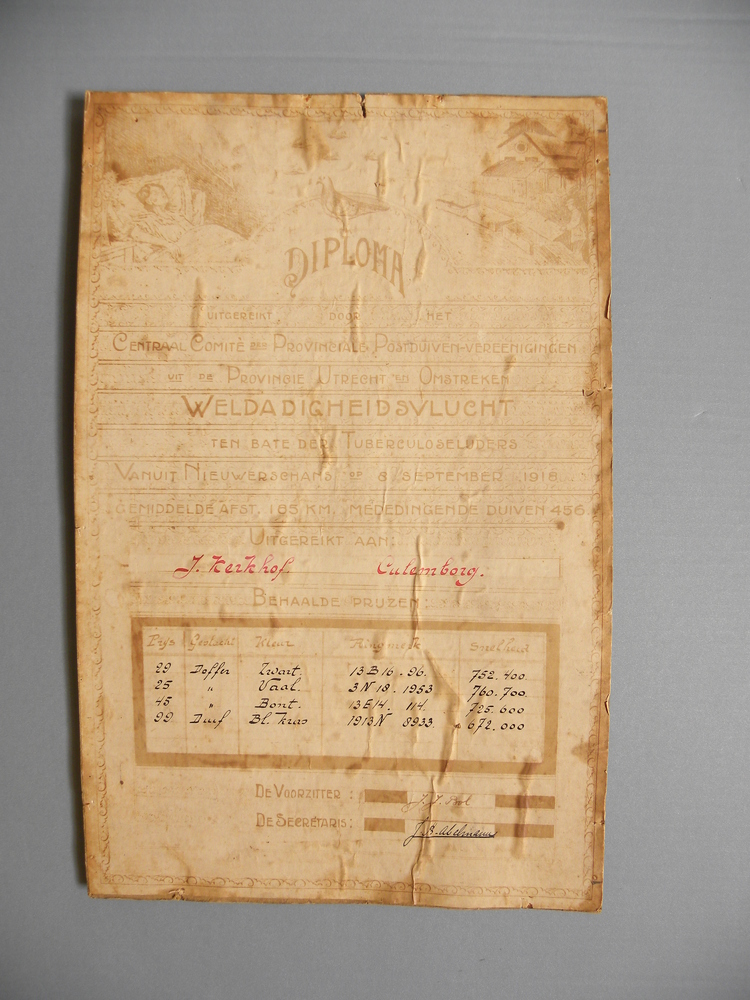 DIPLOMA
UITGEREIKT DOOR HET
CENTRAAL COMITÉ DER PROVINCIALE POSTDUIVEN-VEREENIGINGEN
UIT DE PROVINCIE UTRECHT EN OMSTREKEN
WELDADIGHEIDSVLUCHT
TEN BATE DER TUBERCULOSELIJDERS
VANUIT NIEUWERSCHANS OP 8 SEPTEMBER 1918
GEMIDDELDE AFST. 185 KM. MEDEDINGENDE DUIVEN 456
UITGEREIKT AAN:
J. Kerkhof Culemborg.
BEHAALDE PRIJZEN:
Prijs Geslacht Kleur Ringmerk Snelheid
29 Doffer Zwart. 13 B 16 . 96. 752.400
25 " Vaal. 3 N 18 . 1953 760.700
45 " Bont. 13 E 14 . 114. 725.600
99 Duif Bl. kras 1913 N 8933. 672.000
DE VOORZITTER :
DE SECRETARIS :